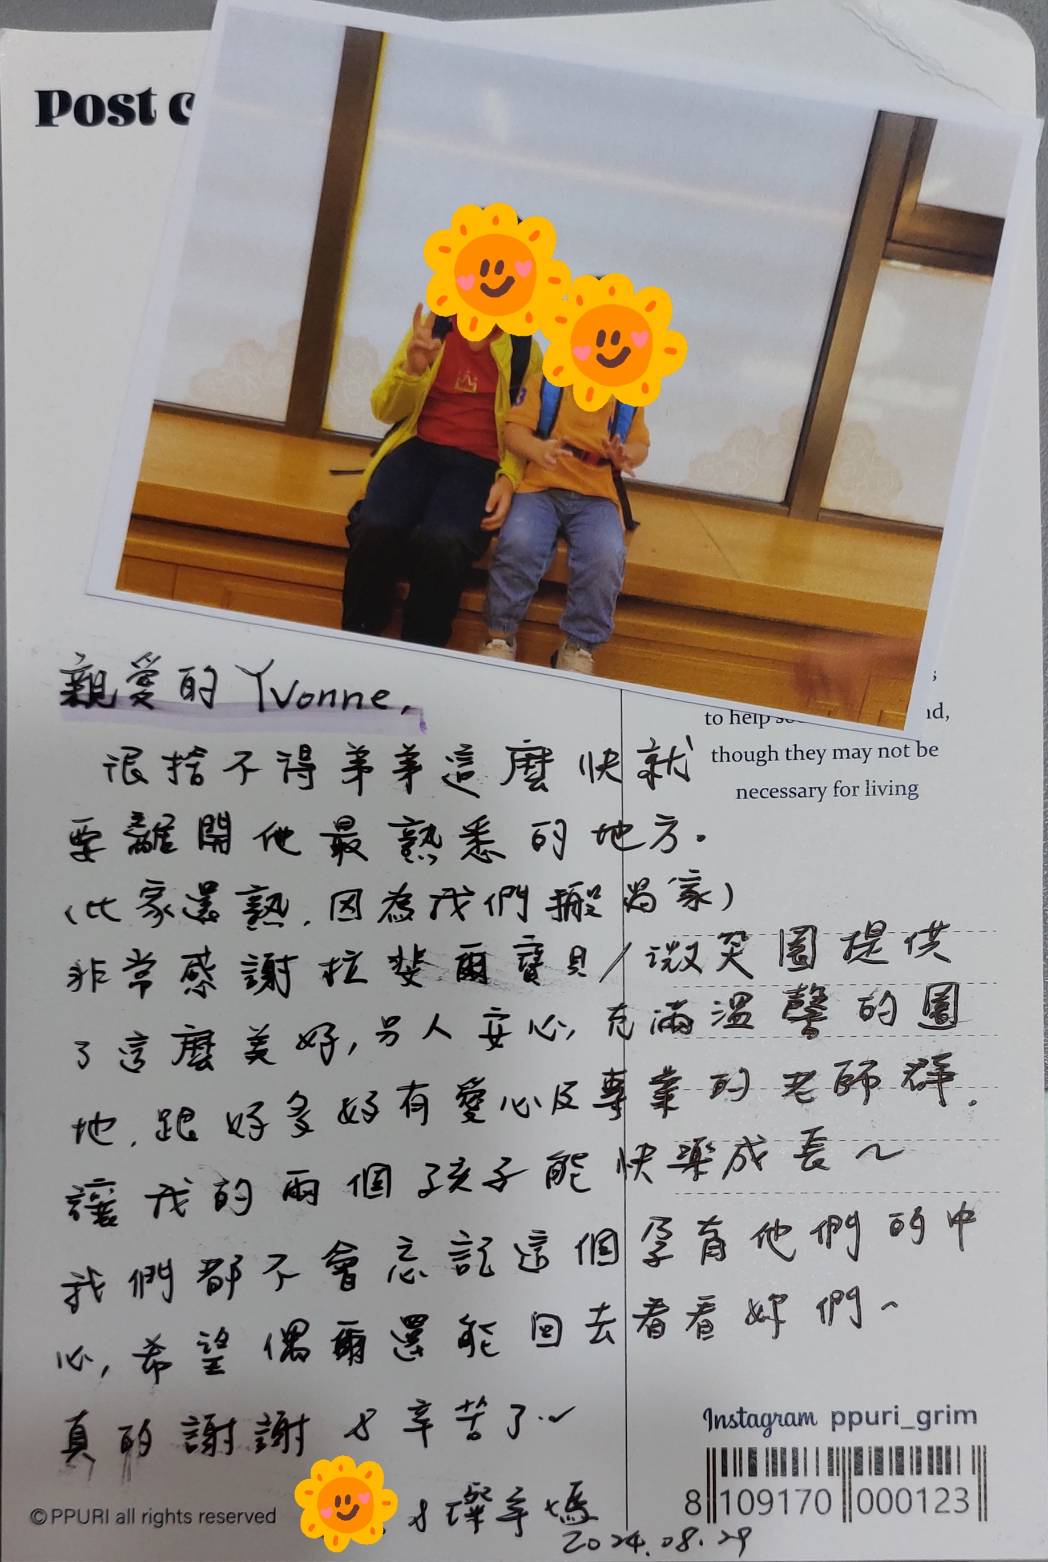 Post c
to help so
nd,
though they may not be
necessary for living
親愛的 Yvonne,
很捨不得弟弟這麼快就
要離開他最熟悉的地方。
(比家還熟,因為我們搬過家)
非常感謝拉斐爾寶貝/微笑園提供
了這麼美好,另人安心,充滿溫馨的園
地,跟好多好有愛心及專業的老師群。
讓我的兩個孩子能快樂成長~
我們都不會忘記這個孕育他們的中
心,希望偶爾還能回去看看妳們~
真的謝謝 & 辛苦了~
Instagram ppuri_grim
8 109170 000123
©PPURI all rights reserved
& 媽
2024.08.29